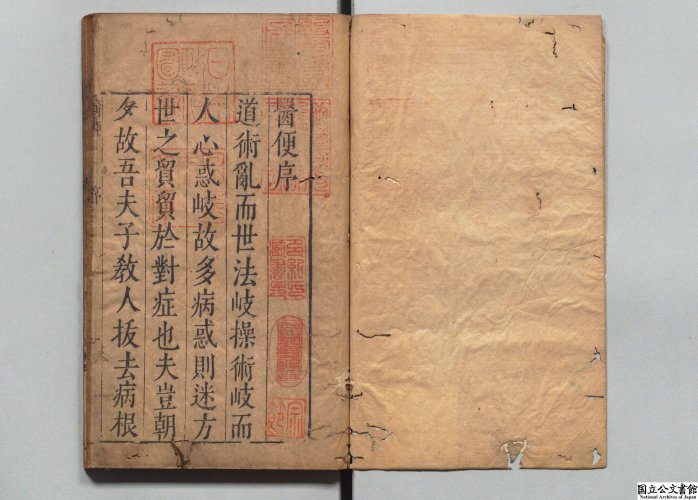 醫便序
道術亂而世法岐操術岐而
人心惑岐故多病惑則迷方
世之貿貿於對症也夫豈朝
夕故吾夫子教人拔去病根
国立公文書館
National Archives of Japan